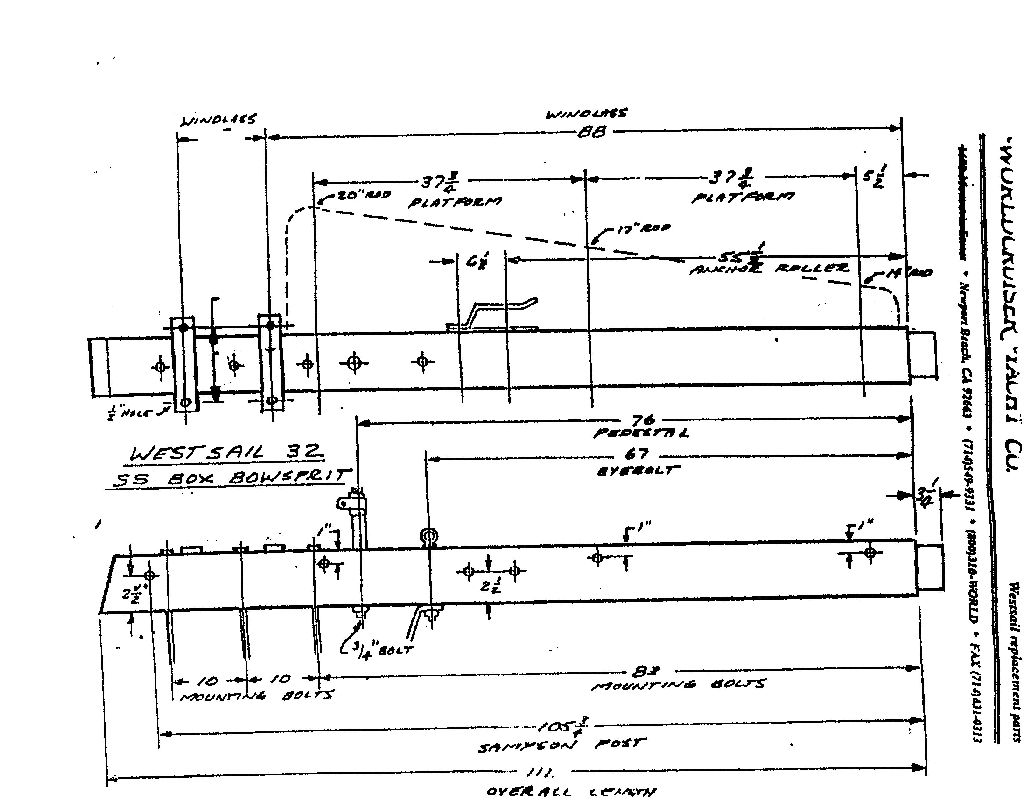 WINDLASS
WINDLASS
88
37 3/4
PLATFORM
37 3/4
PLATFORM
5 1/2
20" ROD
17" ROD
6 1/2
55 1/2
ANCHOR ROLLER
14" ROD
1/2" HOLE
76
PEDESTAL
WESTSAIL 32
SS BOX BOWSPRIT
67
EYEBOLT
3 1/4
1"
1"
1"
2 1/2"
2 1/2
3/4" BOLT
10
10
MOUNTING BOLTS
MOUNTING BOLTS
105 3/4
SAMPSON POST
111
OVERALL LENGTH
"WORLDCRUISER" YACHT CO.
Newport Beach, CA 92663 * (714)549-9331 * (800)310-WORLD * FAX (714)431-0313
Westsail replacement parts